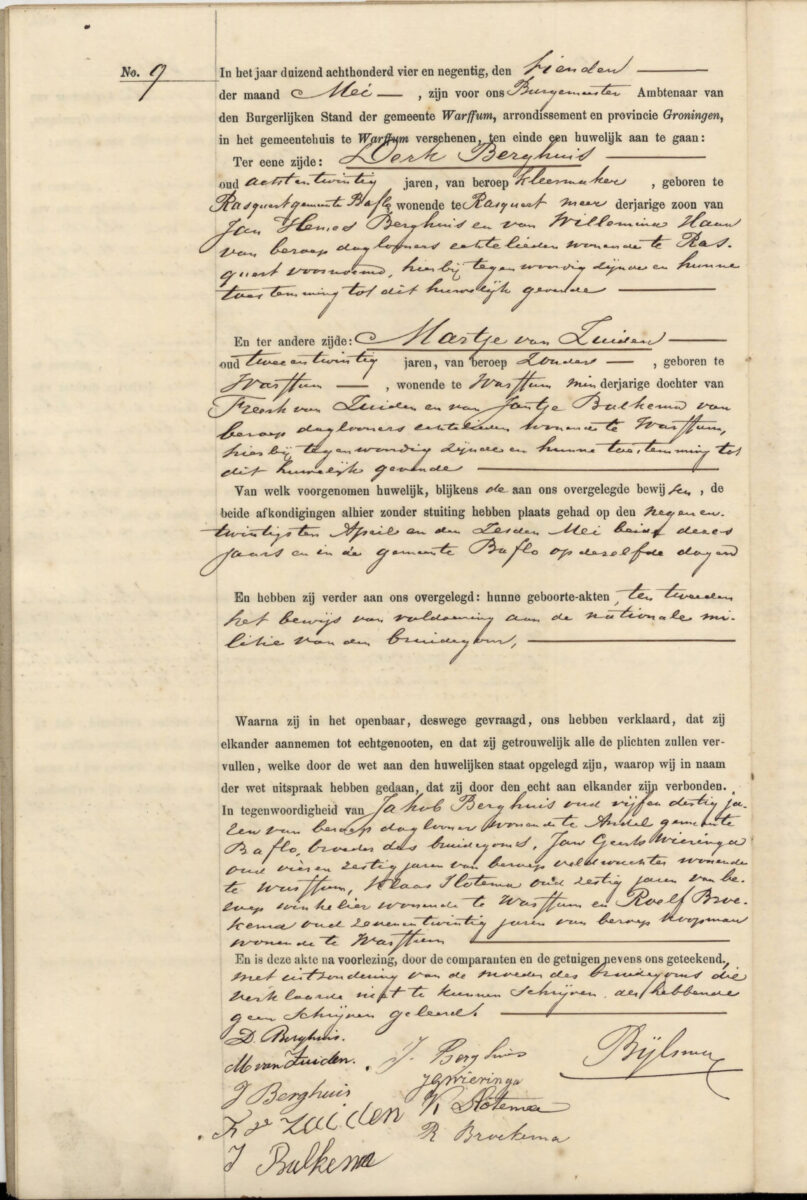 No. 9
In het jaar duizend achthonderd vier en negentig, den tienden
der maand Mei, zijn voor ons Burgemeester Ambtenaar van
den Burgerlijken Stand der gemeente Warffum, arrondissement en provincie Groningen,
in het gemeentehuis te Warffum verschenen, ten einde een huwelijk aan te gaan:
Ter eene zijde: Derk Berghuis
oud achtentwintig jaren, van beroep kleermaker, geboren te
Rasquert gemeente Baflo wonende te Rasquert meerderjarige zoon van
Jan Berghuis en van Willemina Haan
van beroep daglooners echtelieden wonende te Ras-
quert voornoemd, hierbij tegenwoordig zijnde en hunne
toestemming tot dit huwelijk gevende
En ter andere zijde: Martje van Zuiden
oud tweeentwintig jaren, van beroep zonder, geboren te
Warffum, wonende te Warffum minderjarige dochter van
Freerk van Zuiden en van Jantje Balkema van
beroep daglooners echtelieden wonende te Warffum,
hierbij tegenwoordig zijnde en hunne toestemming tot
dit huwelijk gevende
Van welk voorgenomen huwelijk, blijkens de aan ons overgelegde bewijzen, de
beide afkondigingen alhier zonder stuiting hebben plaats gehad op den negenen-
twintigsten April en den zesden Mei beide dezes
jaars en in de gemeente Baflo op dezelfde dagen
En hebben zij verder aan ons overgelegd: hunne geboorte-akten, ten tweeden
het bewijs van voldoening aan de nationale mi-
litie van den bruidegom,
Waarna zij in het openbaar, deswege gevraagd, ons hebben verklaard, dat zij
elkander aannemen tot echtgenooten, en dat zij getrouwelijk alle de plichten zullen ver-
vullen, welke door de wet aan den huwelijken staat opgelegd zijn, waarop wij in naam
der wet uitspraak hebben gedaan, dat zij door den echt aan elkander zijn verbonden.
In tegenwoordigheid van Jakob Berghuis oud vijfendertig ja-
ren van beroep daglooner wonende te Andel gemeente
Baflo, broeder des bruidegoms, Jan Geerts Wieringa
oud vierenzestig jaren van beroep veldwachter wonende
te Warffum, Klaas Slotema oud zestig jaren van be-
roep winkelier wonende te Warffum en Roelf Broe-
kema oud zevenentwintig jaren van beroep koopman
wonende te Warffum
En is deze akte na voorlezing, door de comparanten en de getuigen nevens ons geteekend,
met uitzondering van de moeder des bruidegoms die
verklaarde niet te kunnen schrijven, als hebbende
geen schrijven geleerd.
D. Berghuis.
M van Zuiden.
J Berghuis
F v Zuiden
J Balkema
J. Berghuis
JG Wieringa
K Slotema
R Broekema
Bijlsma